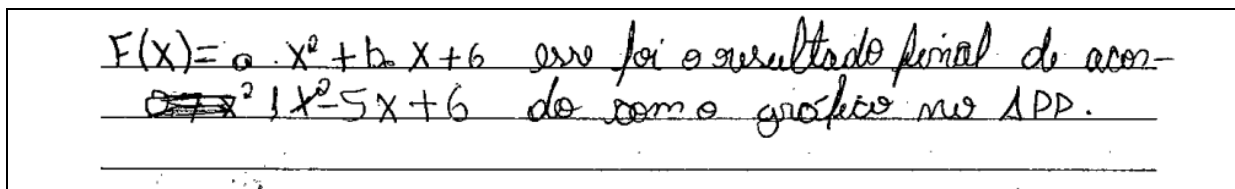 F(x) = a . x² + b. x + 6 esse foi o resultado final de acor-
1x² - 5x + 6 do com o gráfico no APP.